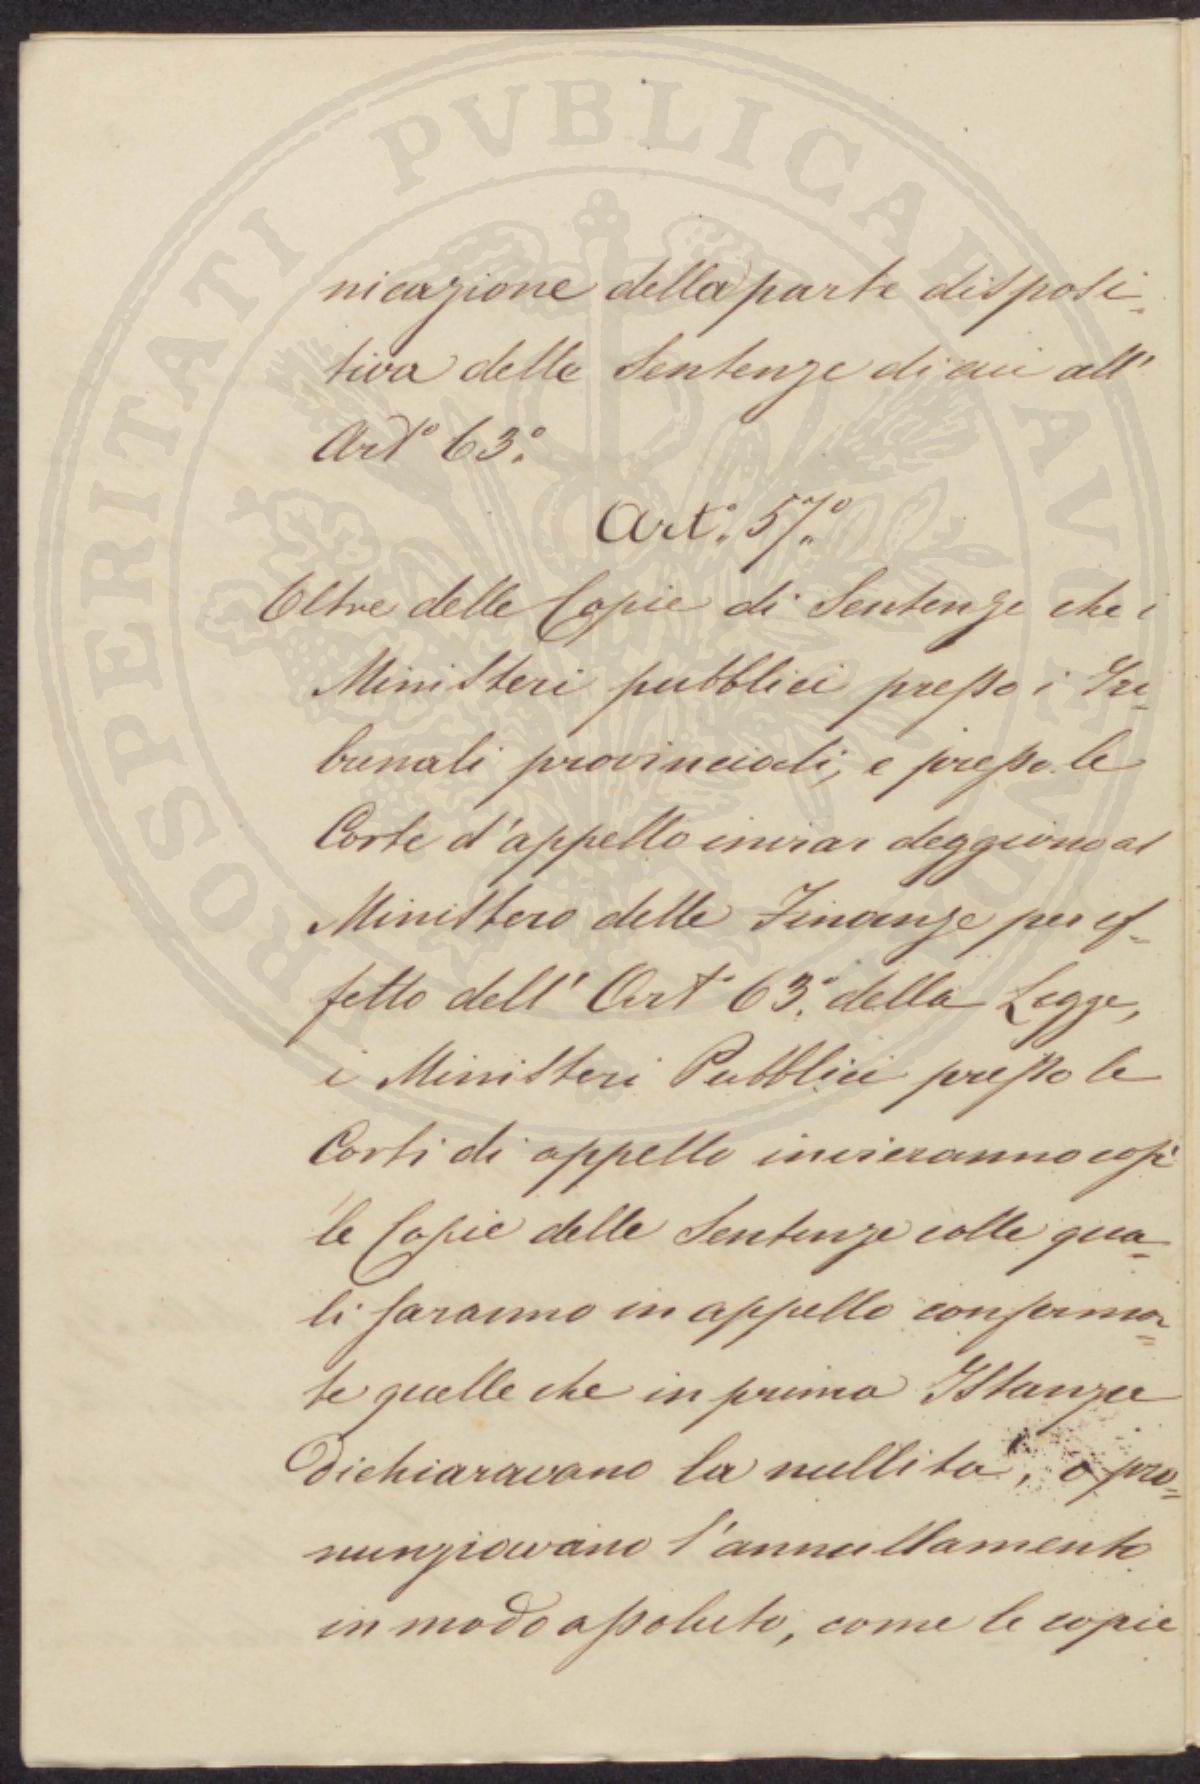 PROSPERITATI PVBLICAE AVGENDAE
nicazione della parte disposi-
tiva delle Sentenze di cui all'
Art.º 63.º
Art.º 57.º
Oltre delle Copie di Sentenze che i
Ministeri pubblici presso i Tri-
bunali provinciali, e presso le
Corte d'appello inviar deggiono al
Ministero delle Finanze per ef-
fetto dell' Art.º 63.º della Legge,
i Ministeri Pubblici presso le
Corti di appello invieranno così
le Copie delle Sentenze colle qua-
li saranno in appello conferma-
te quelle che in prima Istanza
Dichiaravano la nullità, o pro-
nunziavano l'annullamento
in modo assoluto, come le copie